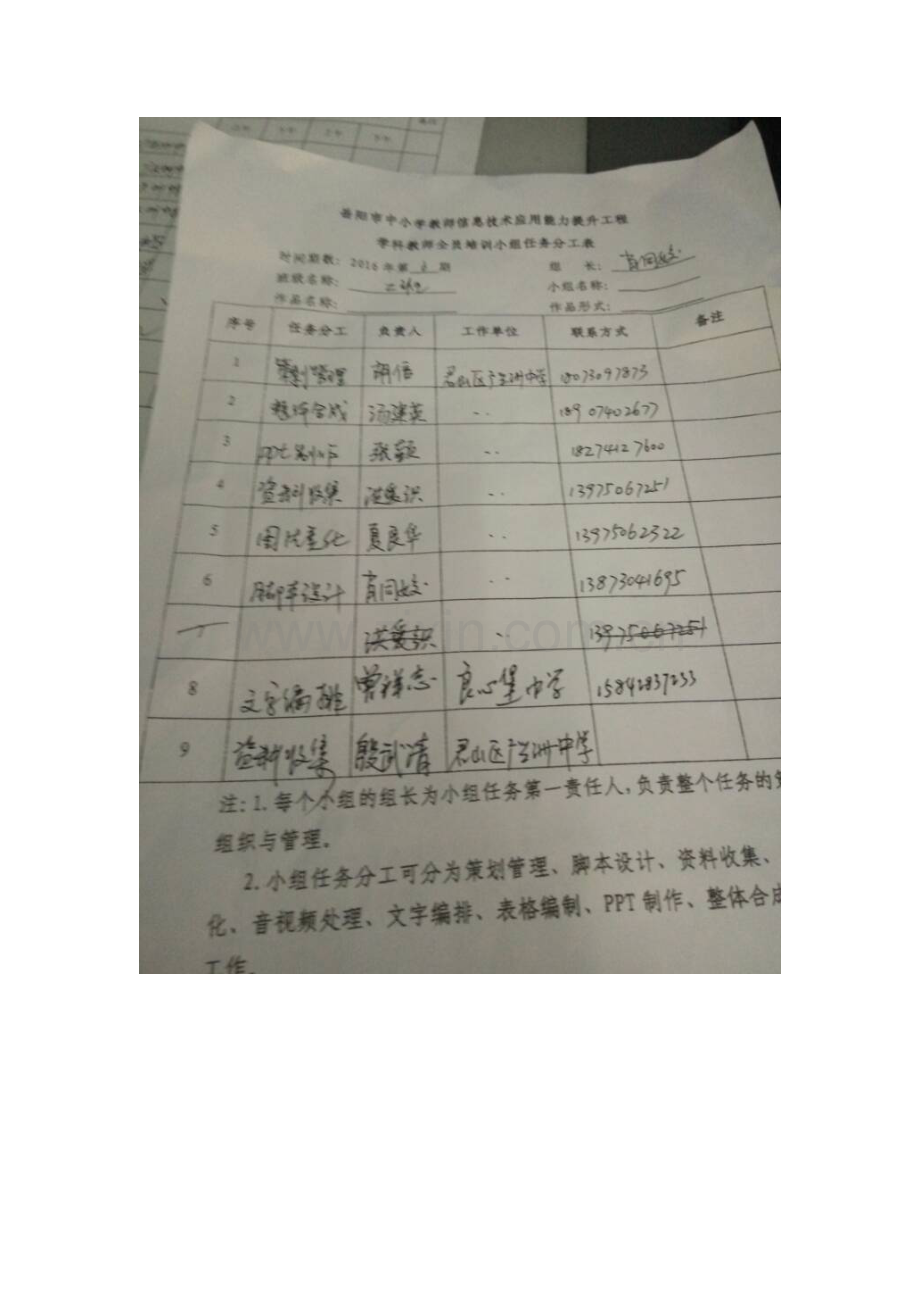 岳阳市中小学教师信息技术应用能力提升工程
学科教师全员培训小组任务分工表
时间期数：2016年第 期 组 长：肖同姣
班级名称：二班 小组名称：
作品名称： 作品形式：
序号 任务分工 负责人 工作单位 联系方式 备注
1 策划管理 胡信 君山区广兴洲中学 18073097873
2 整体合成 汤建英 ‥ 18907402677
3 PPT制作 张颖 ‥ 18274127600
4 资料收集 洪爱识 ‥ 13975067251
5 夏良华 ‥ 13975062322
6 脚本设计 肖同姣 ‥ 13873041695
7 洪爱识 ‥ 13975067251
8 文字编排 曾祥志 良心堡中学 15842837233
9 资料收集 殷武清 君山区广兴洲中学
注：1.每个小组的组长为小组任务第一责任人，负责整个任务的
组织与管理。
2.小组任务分工可分为策划管理、脚本设计、资料收集、
化、音视频处理、文字编排、表格编制、PPT制作、整体合成
工作。